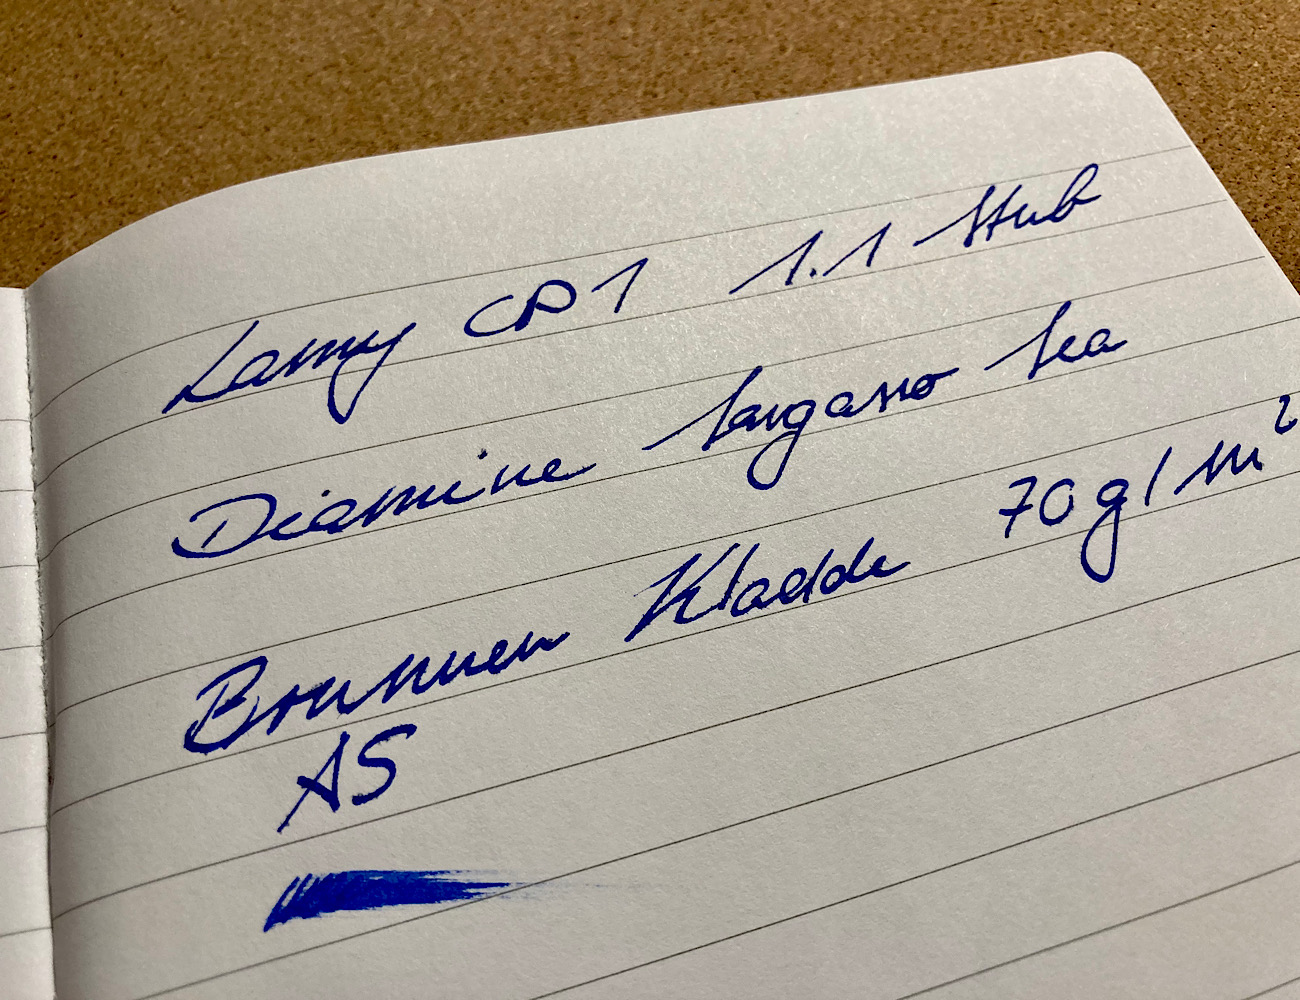 Lamy CP1 1.1 Stub
Diamine Sargasso Sea
Brunnen Kladde 70 g/m²
A5